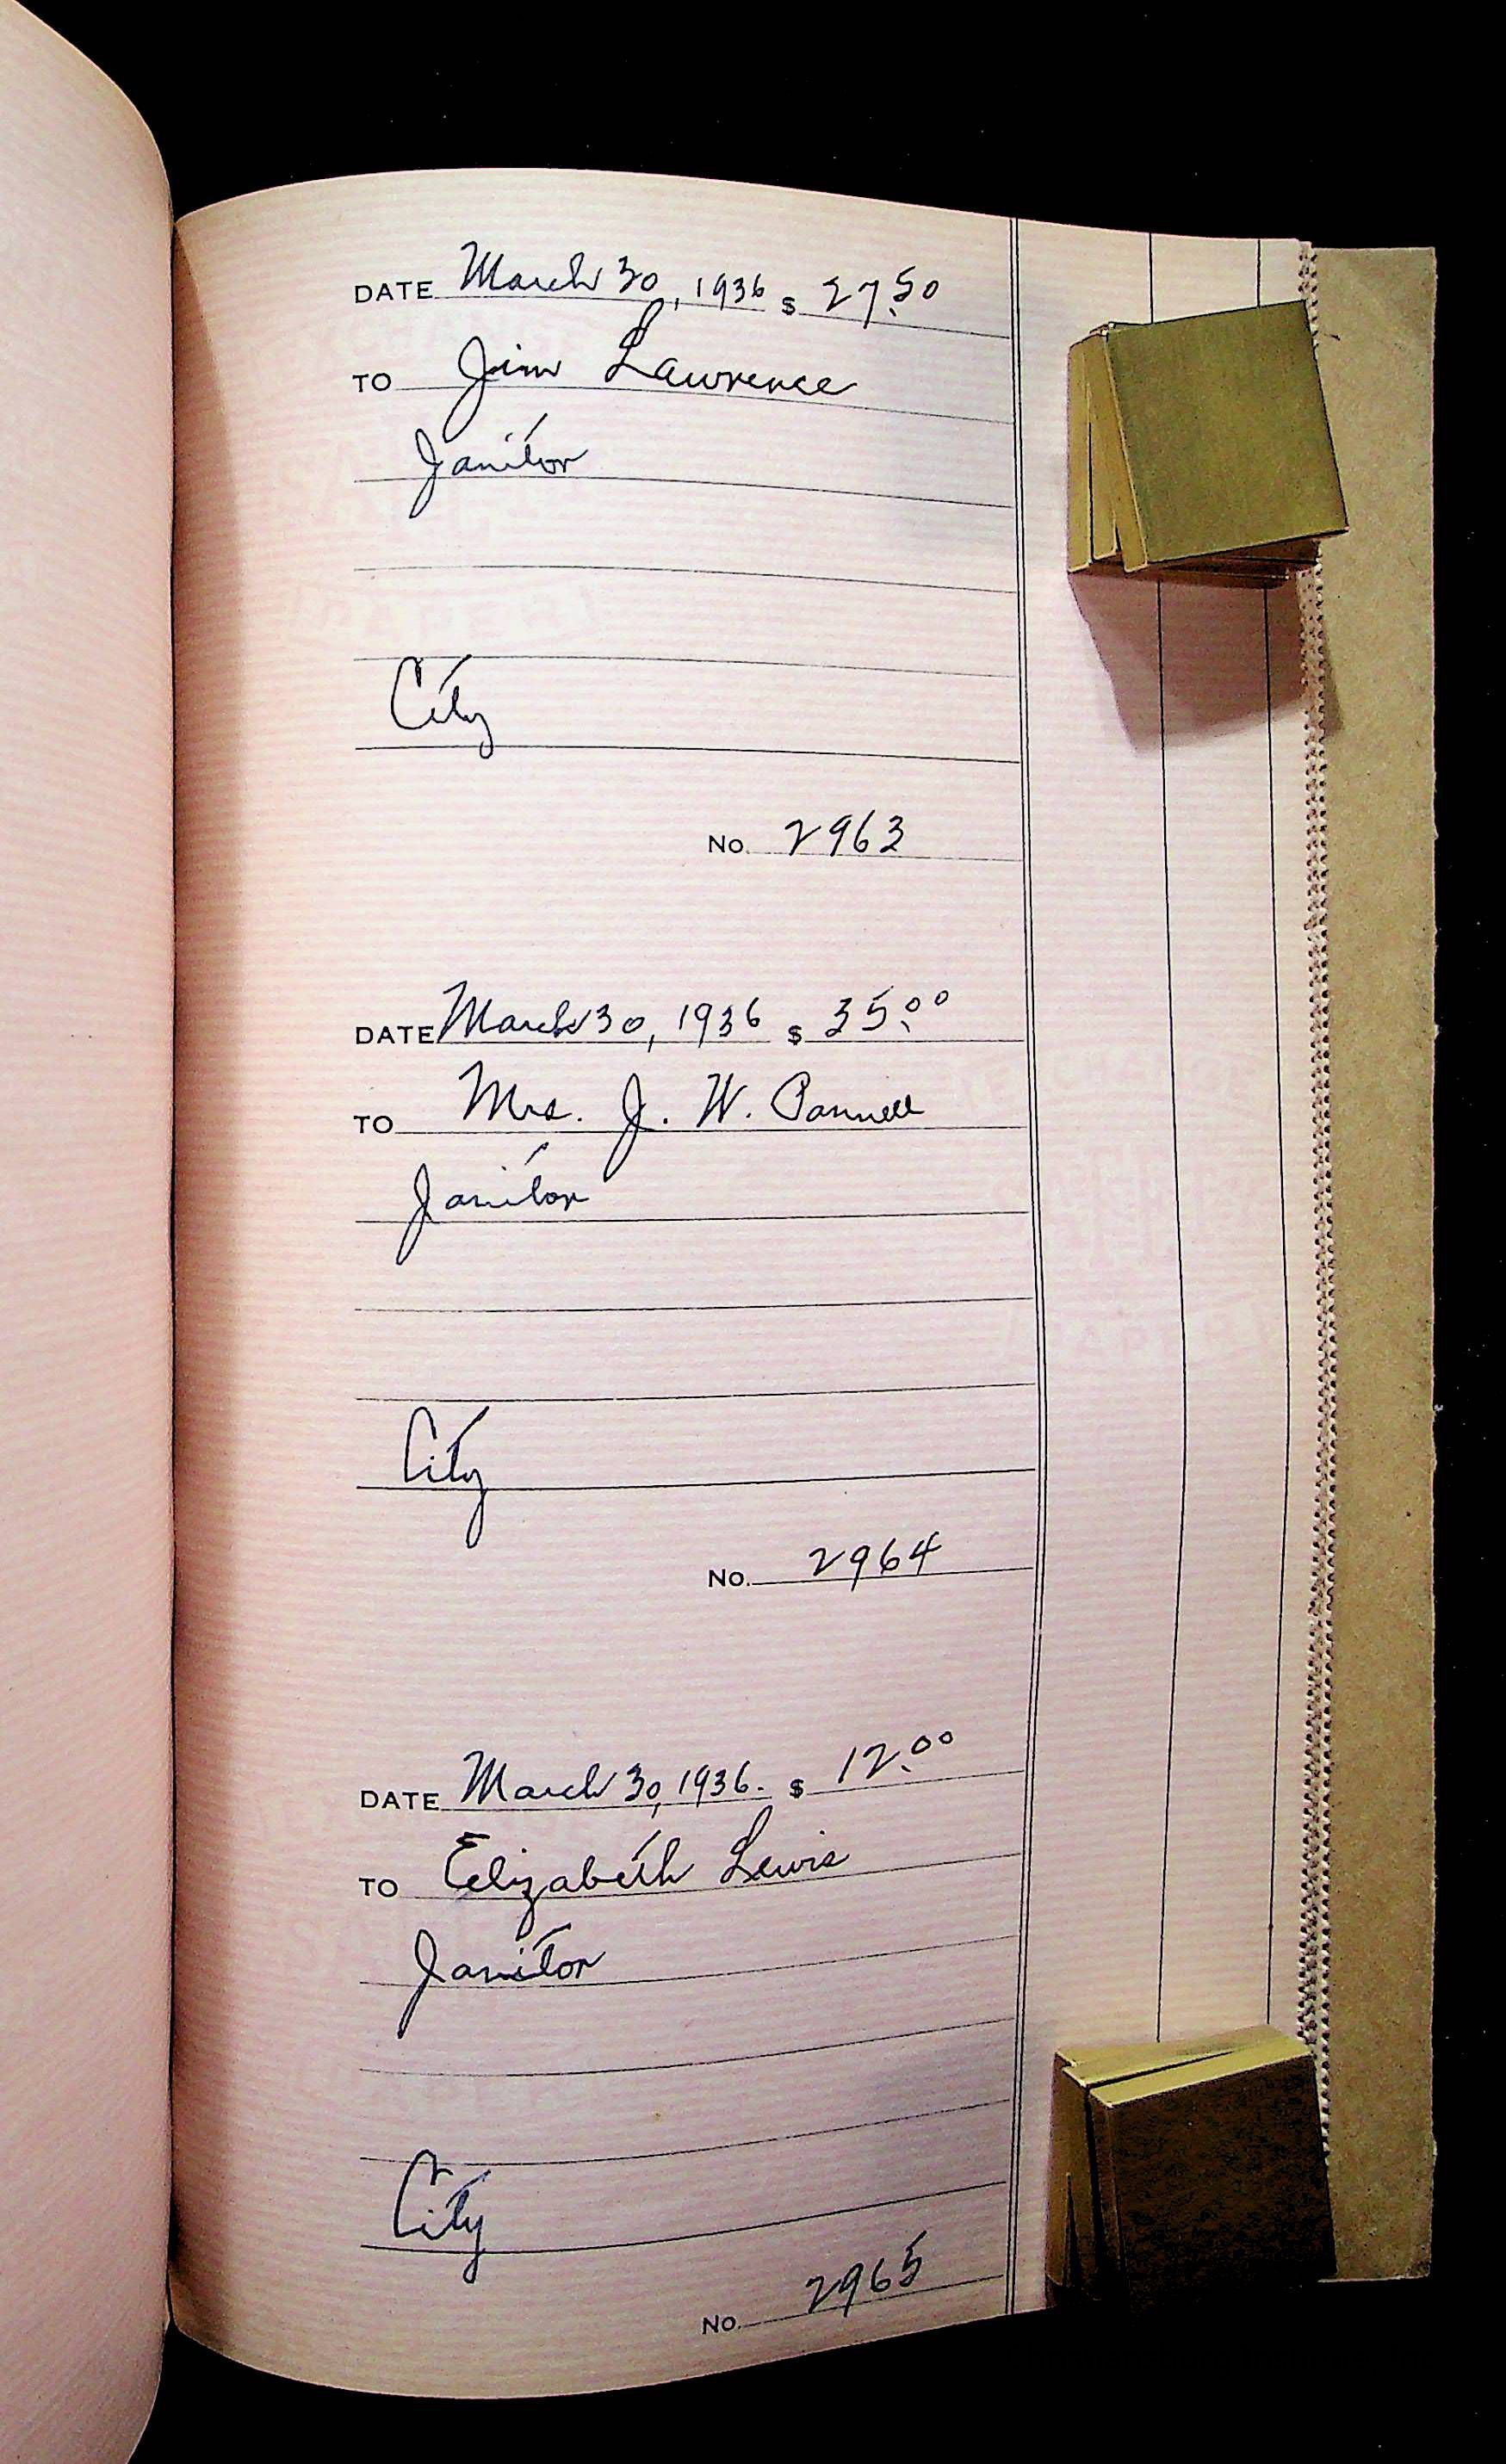 DATE March 30, 1936 $ 27.50
TO Jim Lawrence
Janitor
City
No. 2963
DATE March 30, 1936 $ 35.00
TO Mrs. J. W. Pannell
Janitor
City
No. 2964
DATE March 30, 1936. $ 12.00
TO Elizabeth Lewis
Janitor
City
No. 2965